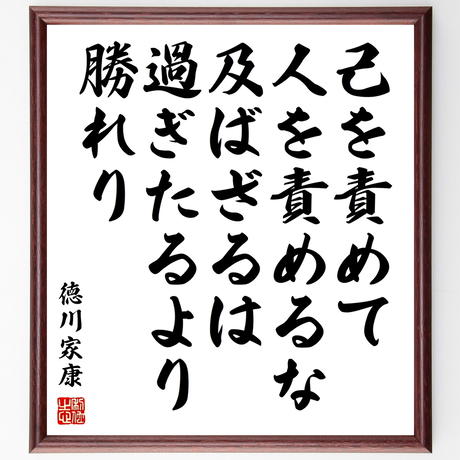 己を責めて
人を責めるな
及ばざるは
過ぎたるより
勝れり
徳川家康